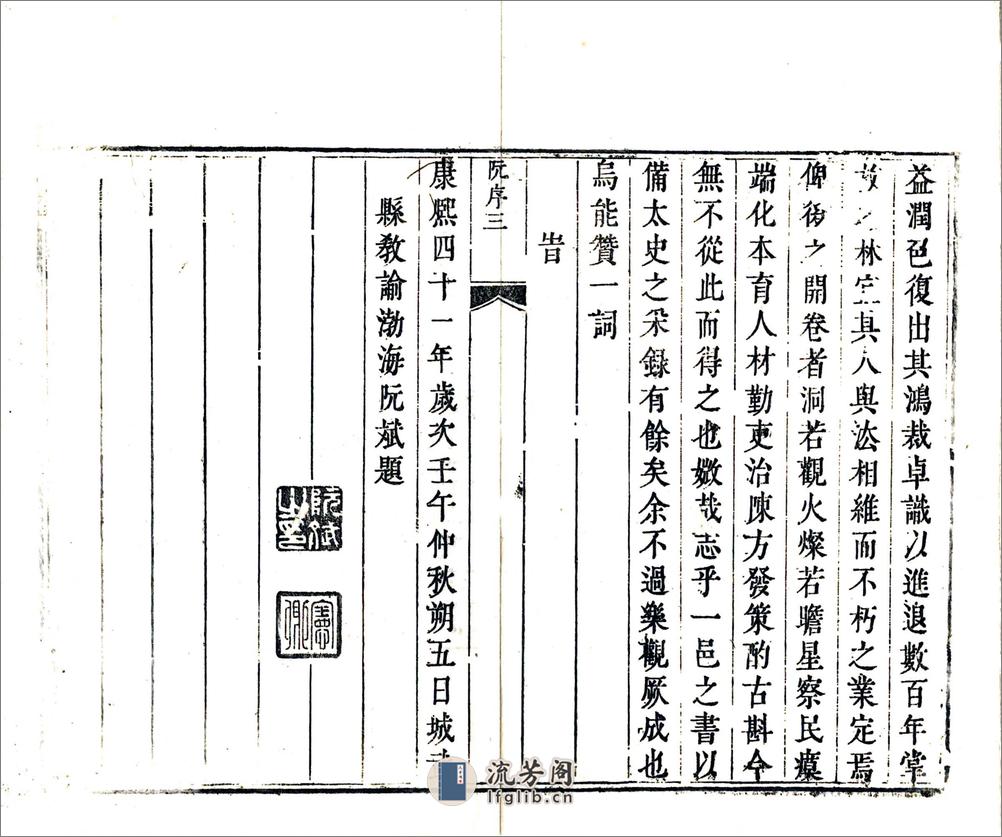 益潤色復出其鴻裁卓識以進退數百年掌
故之林寔其人與法相維而不朽之業定焉
俾後之開卷者洞若觀火燦若瞻星察民瘼
端化本育人材勤吏治陳方發策酌古斟今
無不從此而得之也媺哉志乎一邑之書以
備太史之采録有餘矣余不過樂觀厥成也
烏能贊一詞
旹
阮序三
康熙四十一年歲次壬午仲秋朔五日城
縣教諭渤海阮斌題
阮斌之印
憲卿
流芳阁
lfglib.cn